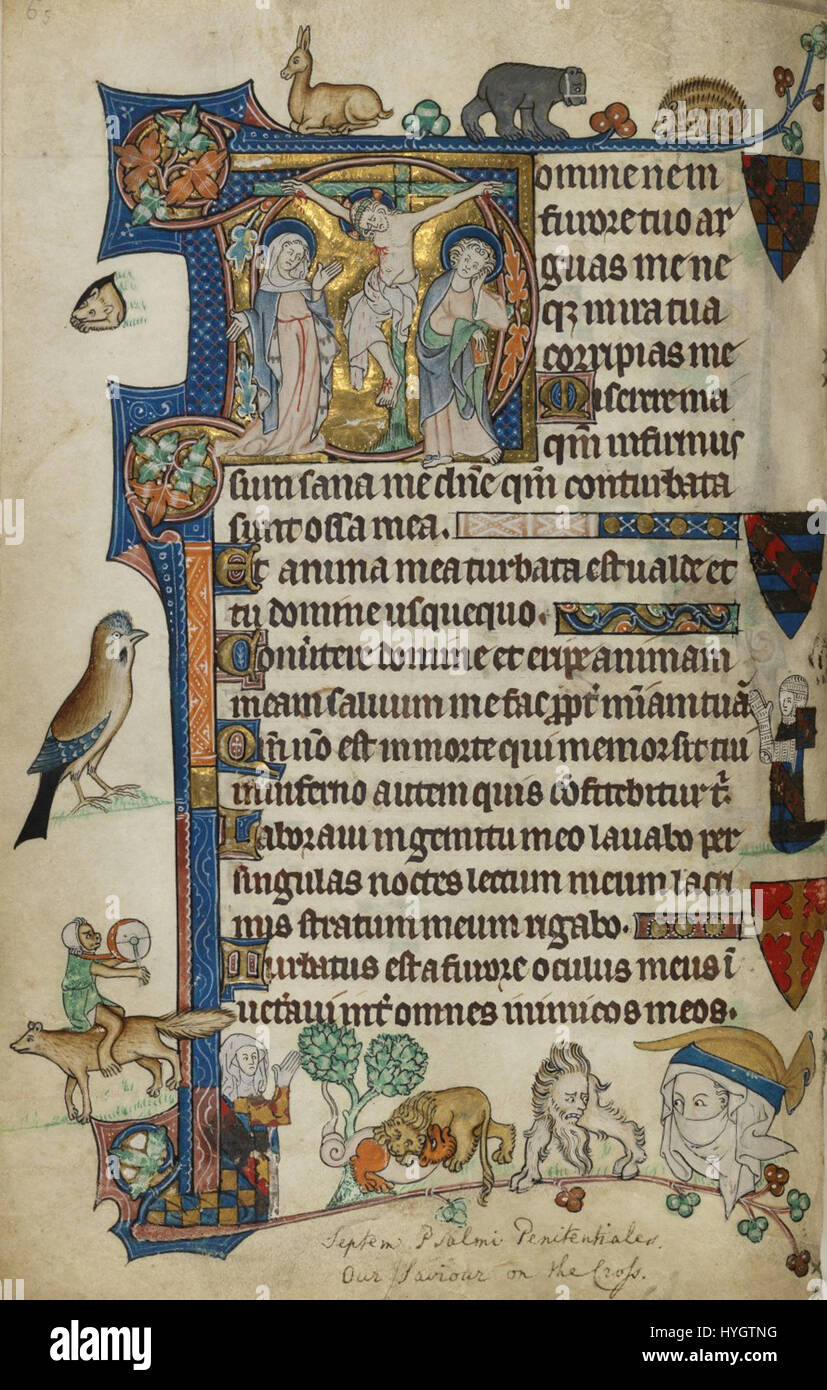 65
omine ne in
furore tuo ar
guas me ne
qȝ in ira tua
corripias me
Miserere mei
qm̄ infirmus
sum sana me dn̄e qm̄ conturbata
sunt ossa mea.
Et anima mea turbata est ualde et
tu domine usquequo.
Conũtere domine et eripe animam
meam saluum me fac ꝓpt̄ mĩam tuã
Qm̄ nõ est in morte qui memor sit tui
in inferno autem quis cõfitebitur t̄.
Laboraui in gemitu meo lauabo per
singulas noctes lectum meum lacri
mis stratum meum rigabo.
Turbatus est a furore oculus meus ĩ
ueteraui int̄ omnes inimicos meos.
Septem Psalmi Penitentiales.
Our Saviour on the Cross.
alamy
Image ID: HYGTNG
www.alamy.com